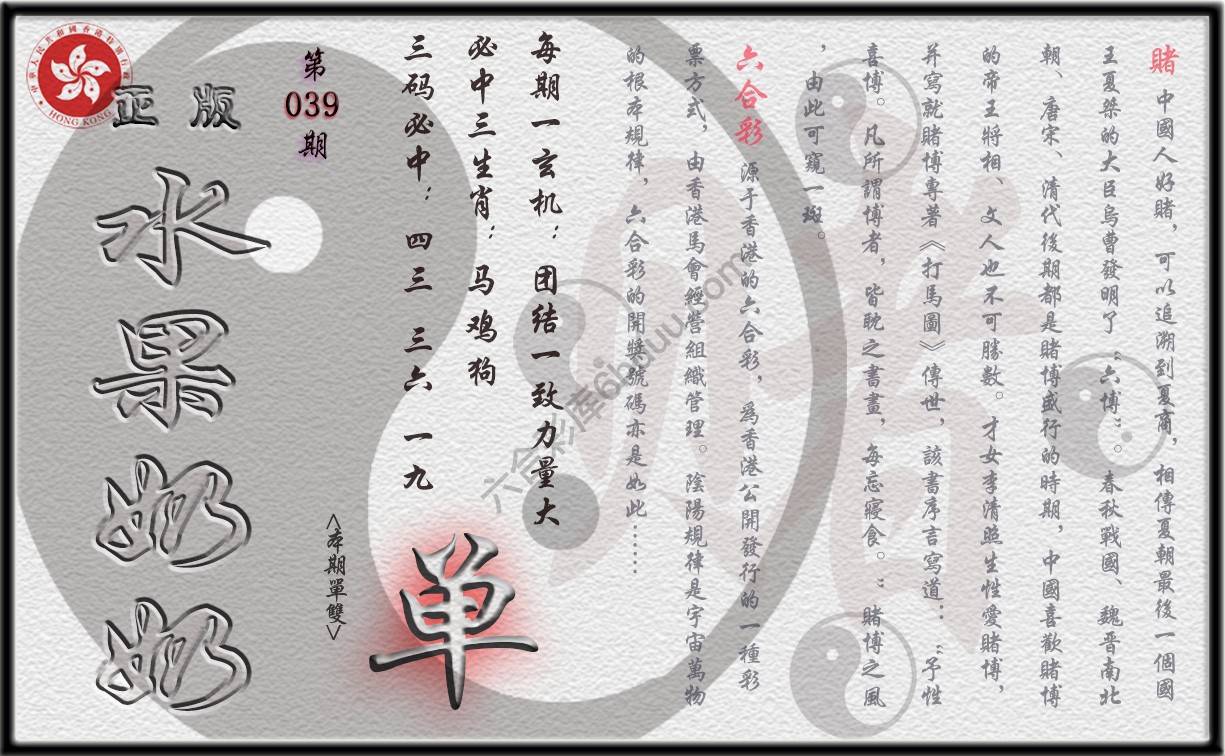 賭 中國人好賭，可以追溯到夏商，相傳夏朝最後一個國
王夏桀的大臣烏曹發明了“六博”。春秋戰國、魏晋南北
朝、唐宋、清代後期都是賭博盛行的時期，中國喜歡賭博
的帝王將相、文人也不可勝數。才女李清照生性愛賭博，
并寫就賭博專著《打馬圖》傳世，該書序言寫道：“予性
喜博。凡所謂博者，皆耽之書畫，每忘寢食。”賭博之風
，由此可窺一斑。
六合彩 源于香港的六合彩，爲香港公開發行的一種彩
票方式，由香港馬會經營組織管理。陰陽規律是宇宙萬物
的根本規律，六合彩的開獎號碼亦是如此……
每期一玄机：团结一致力量大
必中三生肖：马鸡狗
三码必中：四三 三六 一九
<本期單雙>
单
第
039
期
正版
水果奶奶
中華人民共和國香港特別行政區
HONG KONG
六合彩库6htuu.com